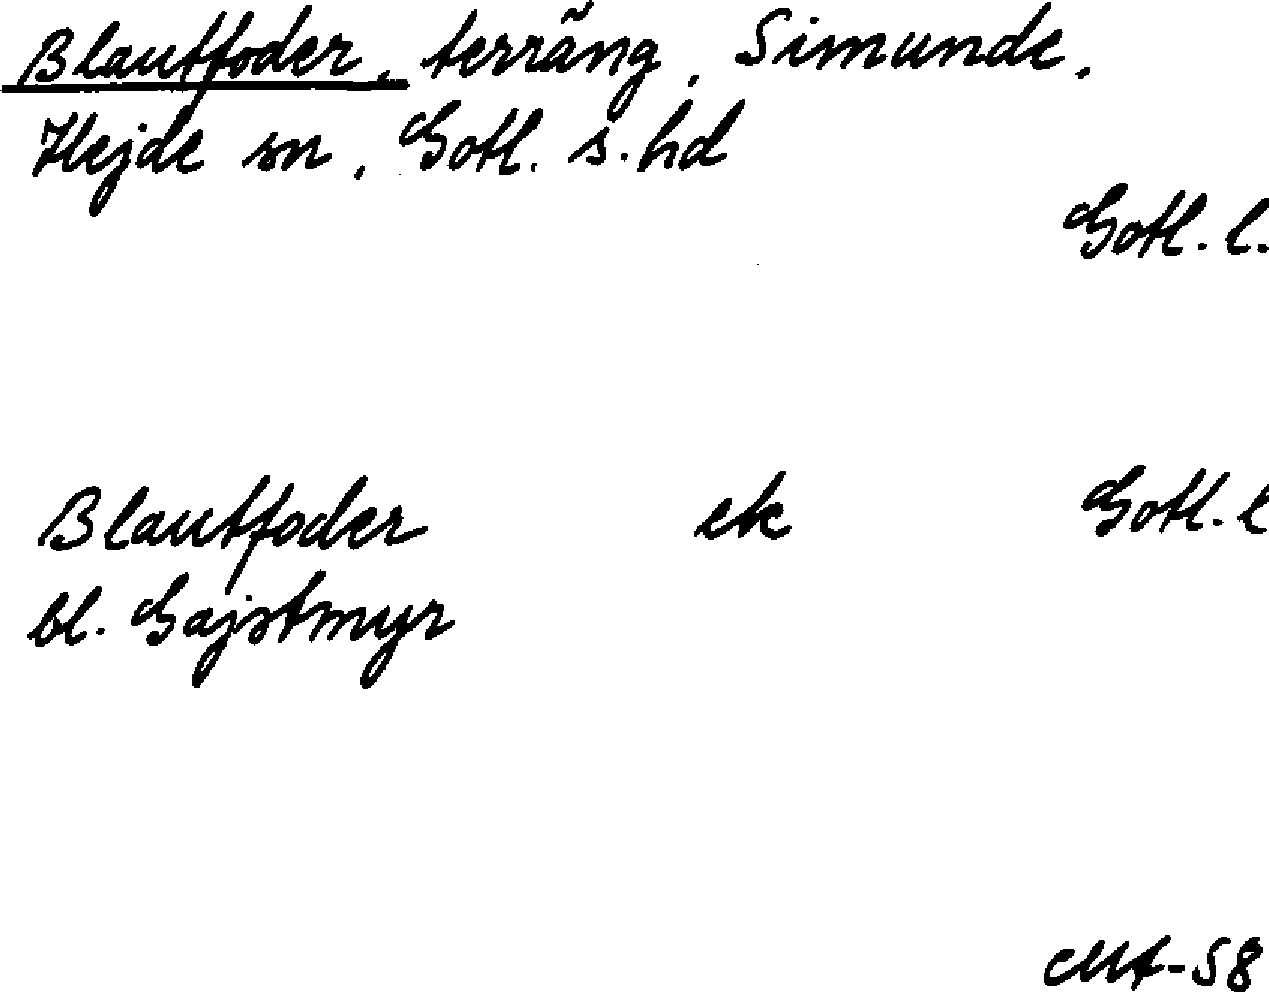 Blautfoder, terräng, Simunde,
Hejde sn, Gotl. s. hd
Gotl. l.
Blautfoder ek Gotl. l
bl. Gajstmyr